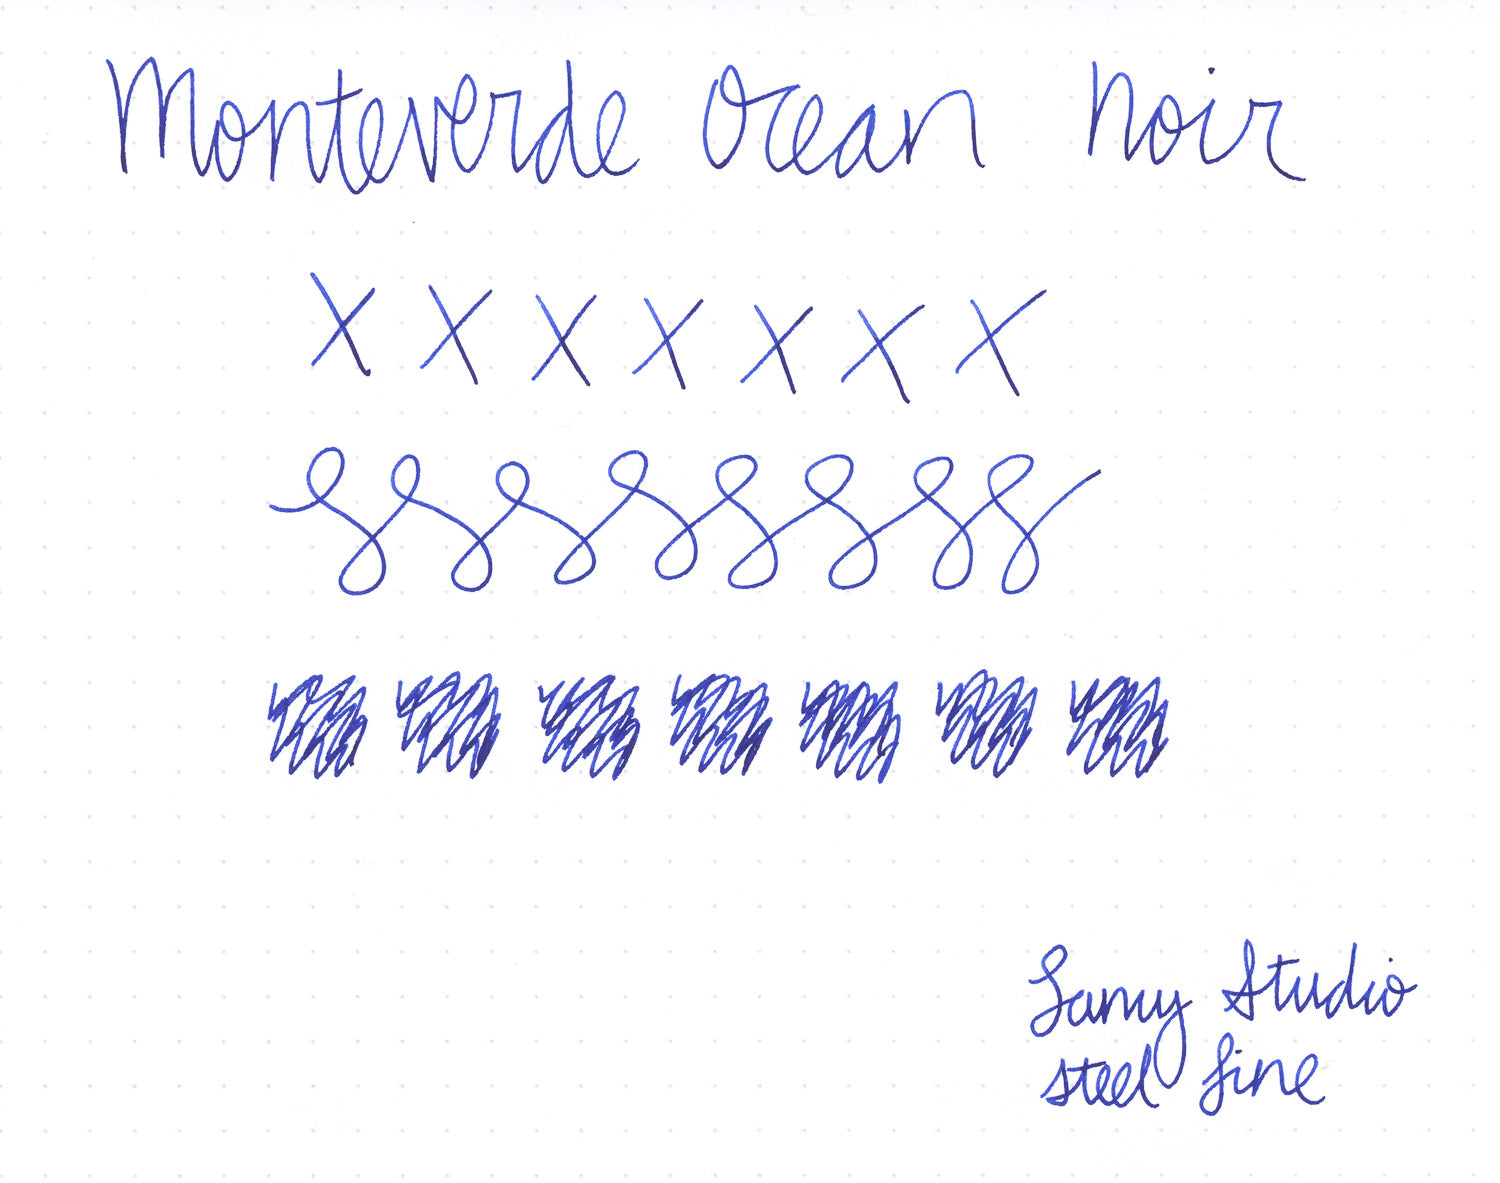 Monteverde Ocean Noir
X X X X X X X
Lamy Studio
steel fine